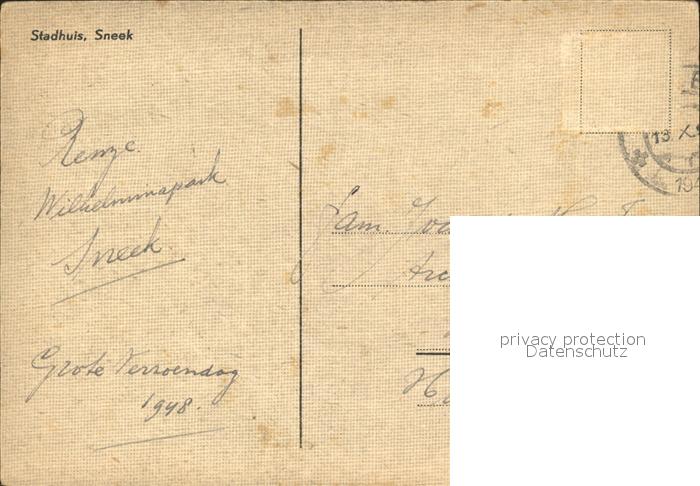 Stadhuis, Sneek
Renze
Wilhelminapark
Sneek
Grote Verzoendag
1948.
13 X
19
Fam.
privacy protection
Datenschutz